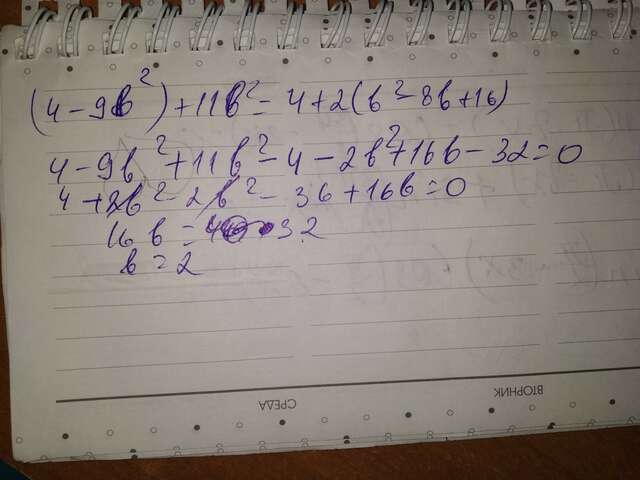 (4-9в²)+11в²= 4+2(в²-8в+16)
4-9в²+11в²-4-2в²+16в-32=0
4+2в²-2в²-36+16в=0
16в=32
в=2
СРЕДА
ВТОРНИК